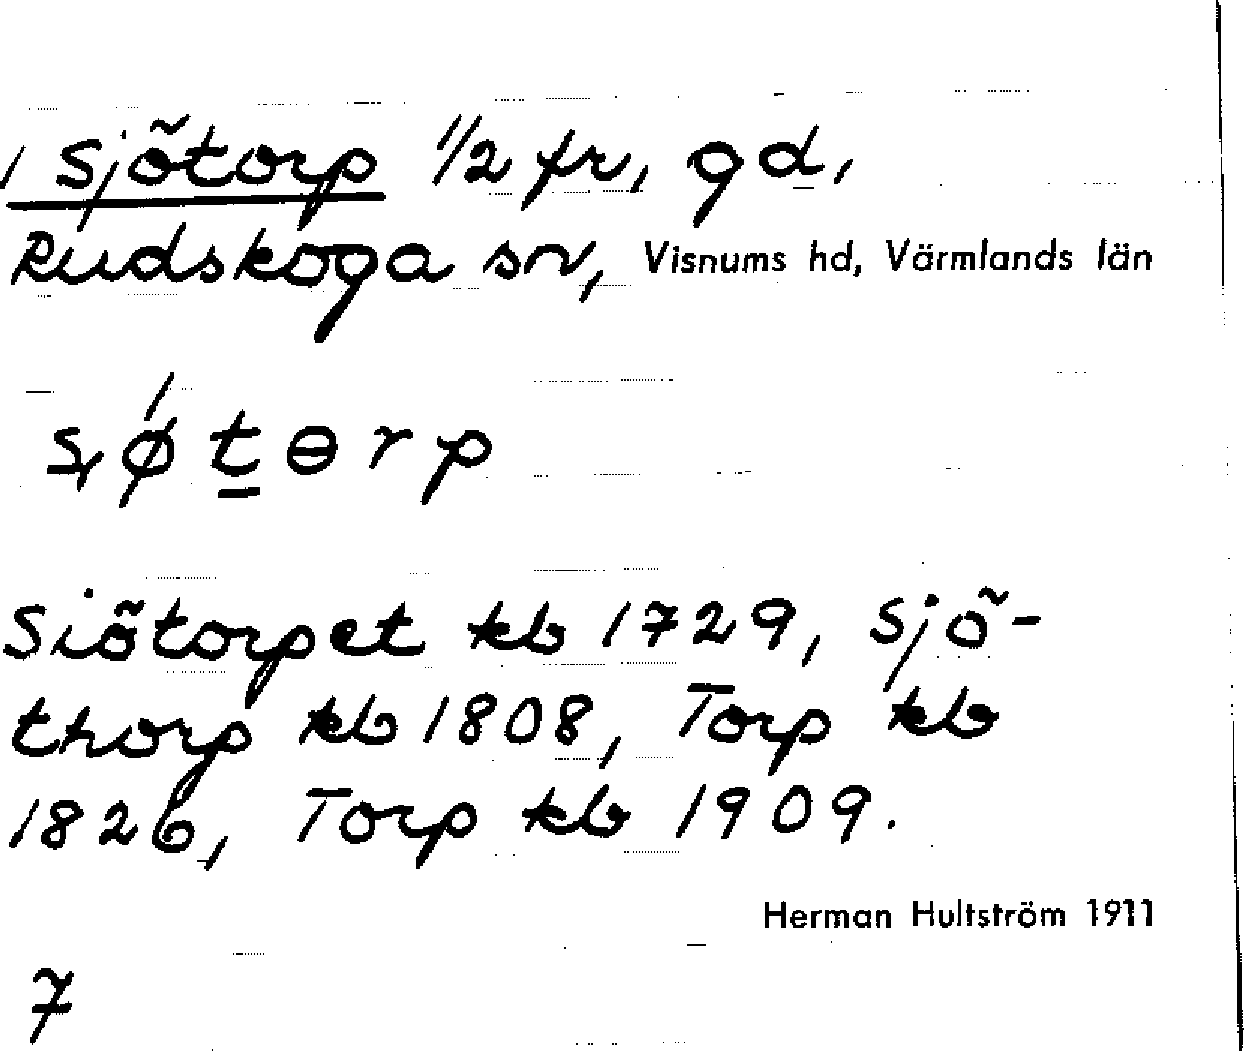 Sjötorp 1/2 fr, gd,
Rudskoga sn, Visnums hd, Värmlands län
Siötorpet kb 1729, Sjö-
thorp kb 1808, Torp kb
1826, Torp kb 1909.
Herman Hultström 1911
7